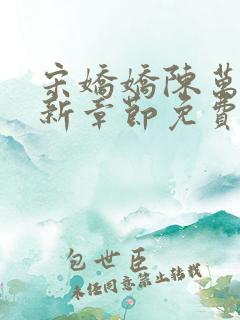 宋嬌嬌陳萬
新章節免費
包世臣
未经同意禁止转载